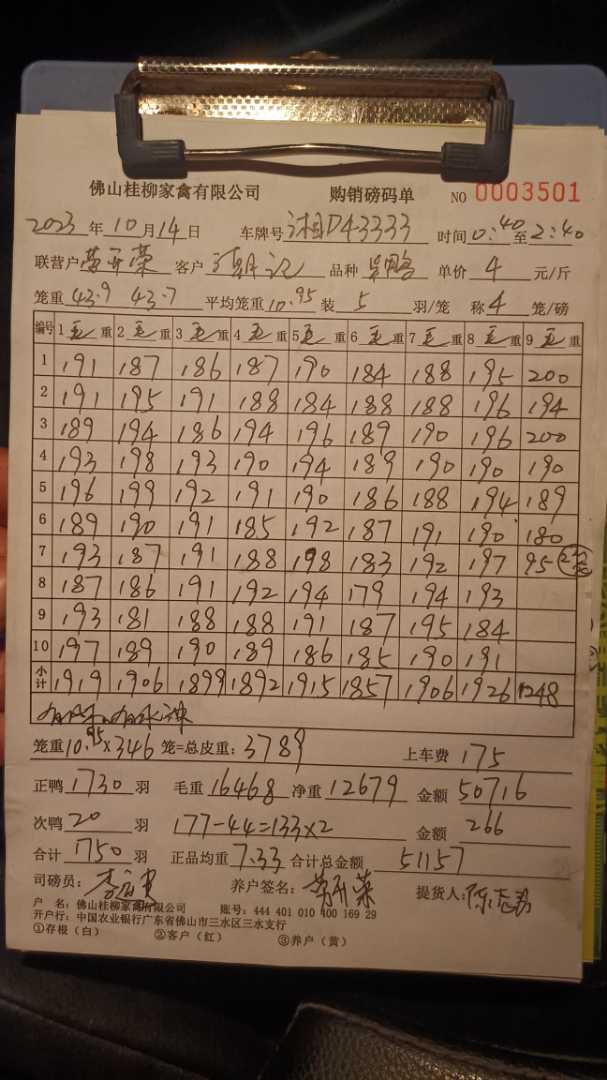 佛山桂柳家禽有限公司 购销磅码单 NO 0003501
2023 年 10 月 14 日 车牌号 湘D43333 时间 0:40 至 2:40
联营户 黄开荣 客户 记 品种 鸭 单价 4 元/斤
笼重 43.9 43.7 平均笼重 10.95 装 5 羽/笼 称 4 笼/磅
编号 1 毛 重 2 毛 重 3 毛 重 4 毛 重 5 毛 重 6 毛 重 7 毛 重 8 毛 重 9 毛 重
1 191 187 186 187 190 184 188 195 200
2 191 195 191 188 184 188 188 196 194
3 189 194 186 194 196 189 190 196 200
4 193 198 193 190 194 189 190 190 190
5 196 199 192 191 190 186 188 194 189
6 189 190 191 185 192 187 191 190 180
7 193 187 191 188 198 183 192 197 95
8 187 186 191 192 194 179 194 193
9 193 181 188 188 191 187 195 184
10 197 189 190 189 186 185 190 191
小计 1919 1906 1899 1892 1915 1857 1906 1926 1248
笼重 10.95 × 346 笼=总皮重: 3789 上车费 175
正鸭 1730 羽 毛重 16468 净重 12679 金额 50716
次鸭 20 羽 177-44=133×2 金额 266
合计 1750 羽 正品均重 7.33 合计总金额 51157
司磅员: 养户签名: 黄开荣 提货人: 陈志
户 名: 佛山桂柳家禽有限公司 账号: 444 401 010 400 169 29
开户行: 中国农业银行广东省佛山市三水区三水支行
①存根（白） ②客户（红） ③养户（黄）